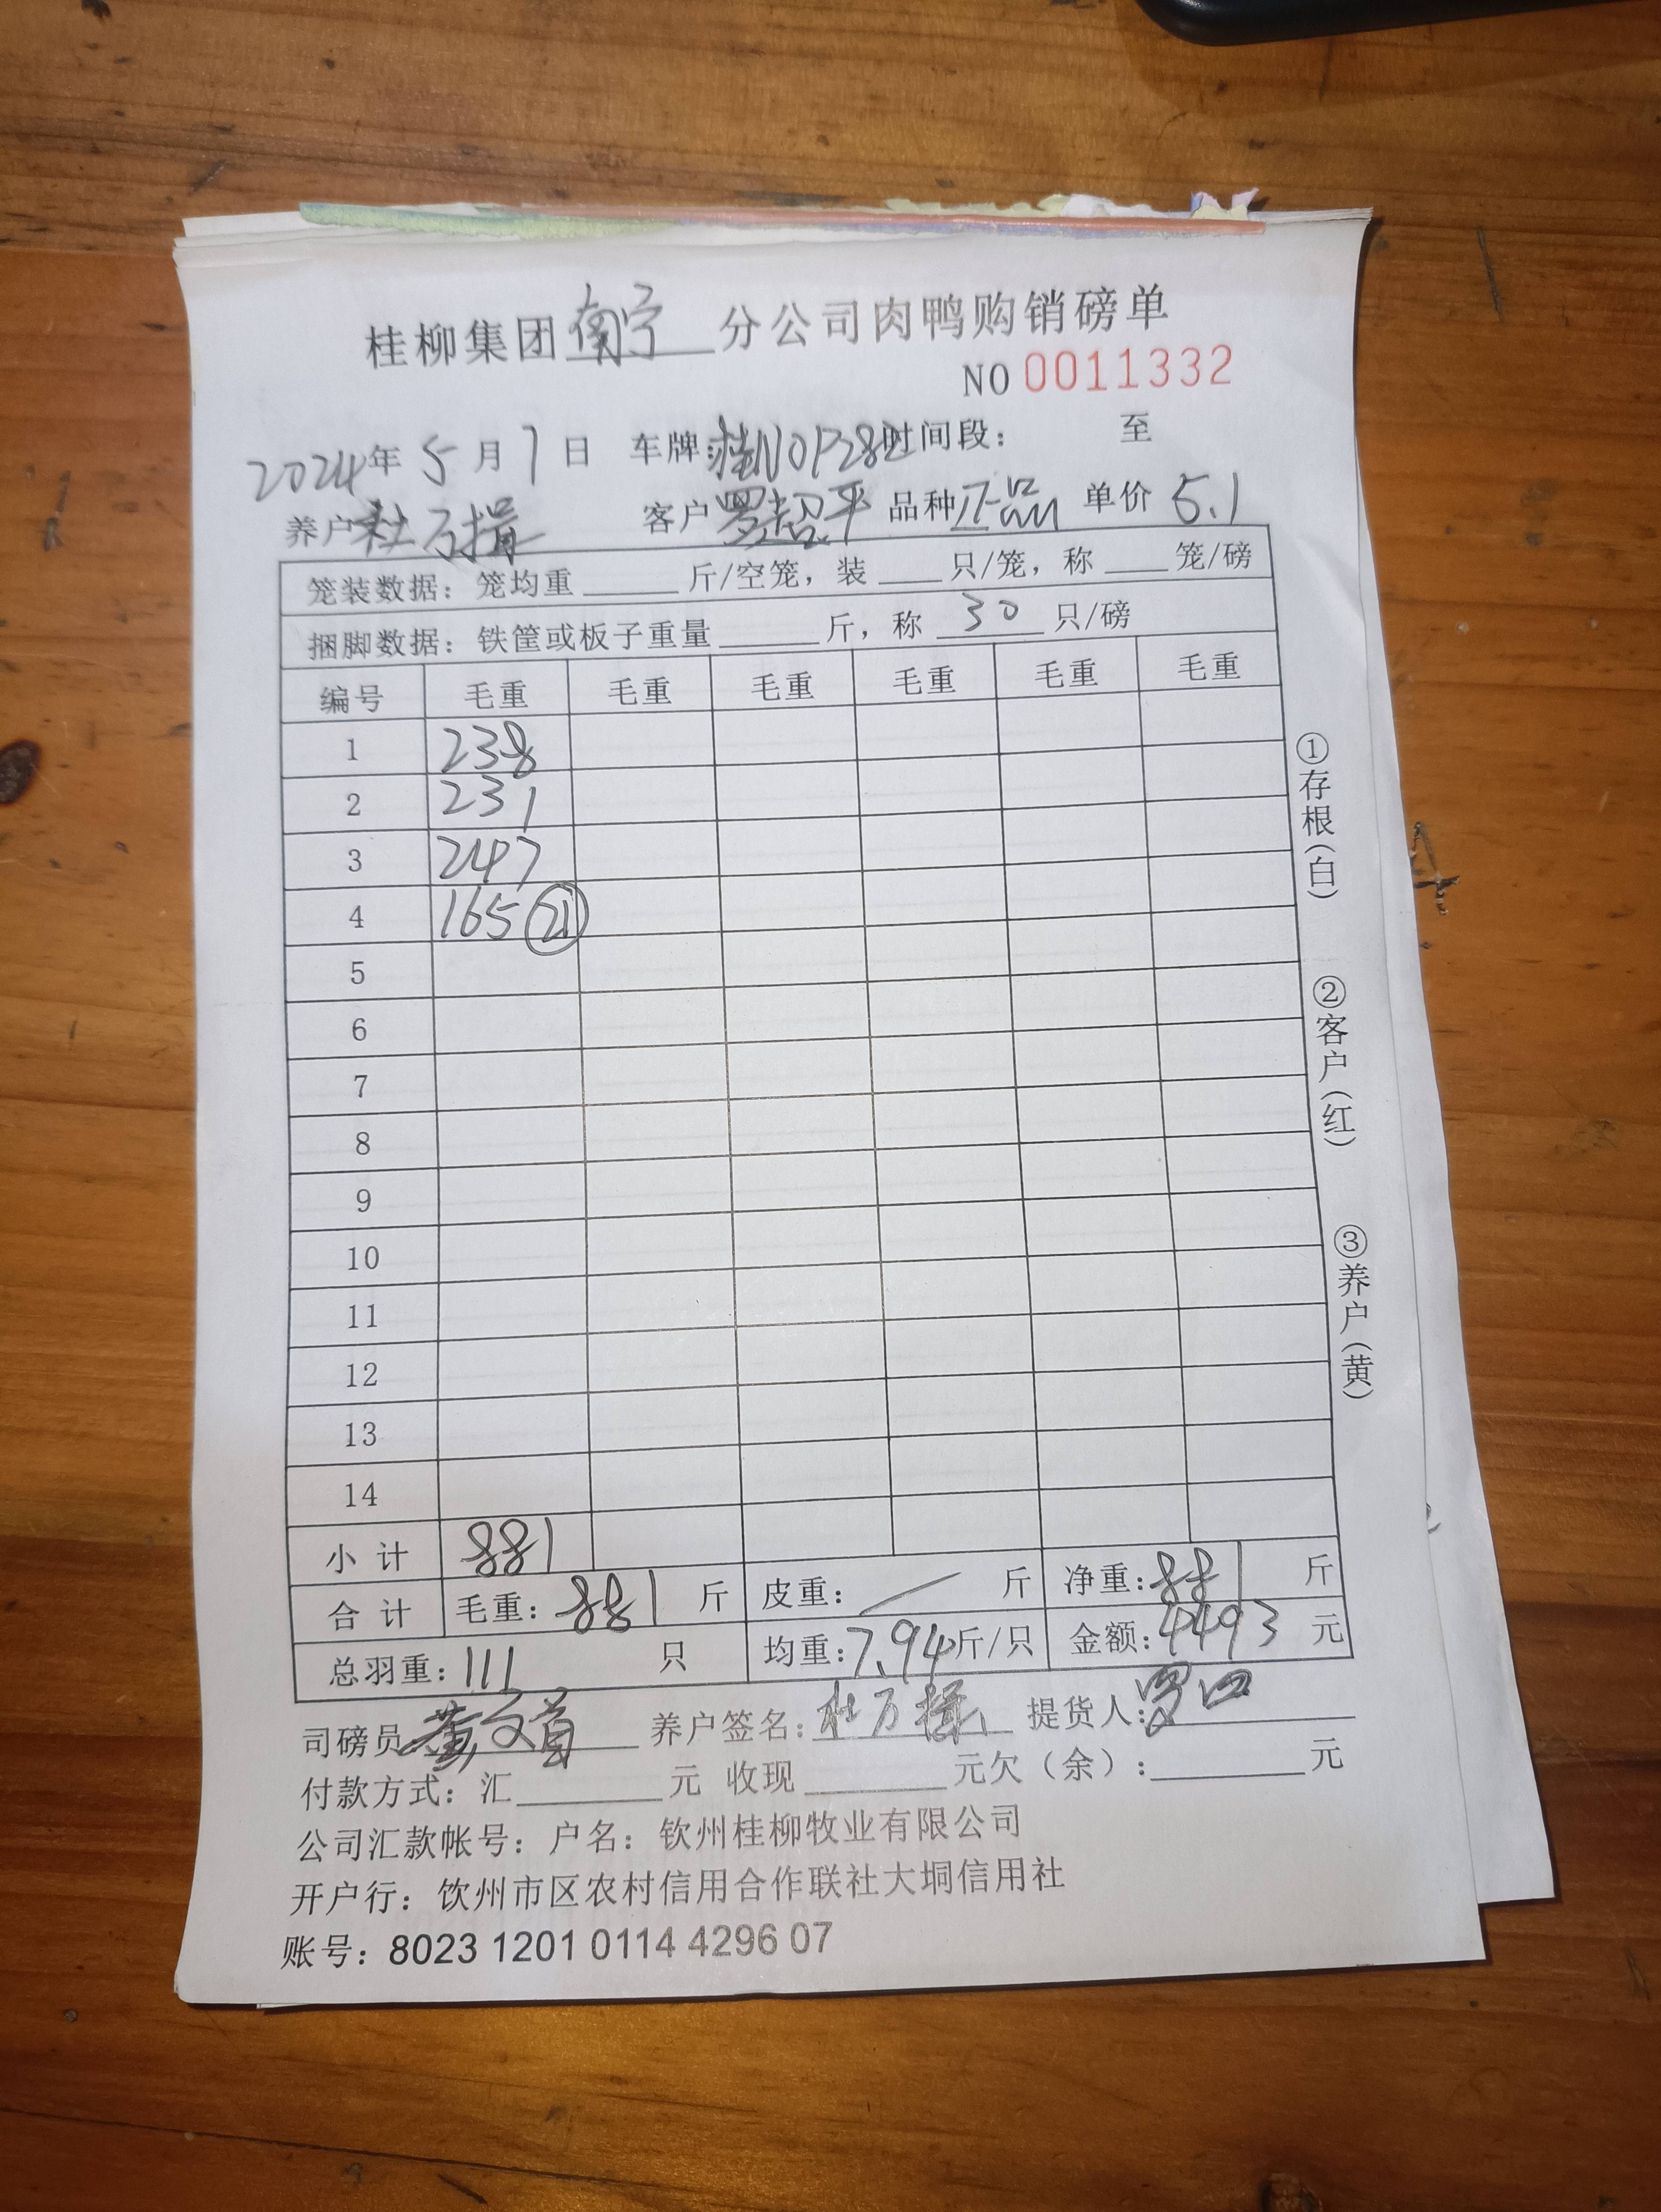 桂柳集团南宁分公司肉鸭购销磅单
NO 0011332
2024年5月7日 车牌:桂N0P282时间段: 至
养户杜万揖 客户罗超平 品种正品 单价5.1
笼装数据:笼均重____斤/空笼,装___只/笼,称___笼/磅
捆脚数据:铁筐或板子重量____斤,称 30 只/磅
编号 毛重 毛重 毛重 毛重 毛重 毛重
1 238
2 231
3 247
4 165 21
5
6
7
8
9
10
11
12
13
14
小计 881
合计 毛重:881 斤 皮重:/ 斤 净重:881 斤
总羽重:111 只 均重:7.94斤/只 金额:4493 元
司磅员 黄文首 养户签名:杜万揖 提货人:罗四
付款方式:汇______元 收现______元欠(余):______元
公司汇款帐号:户名:钦州桂柳牧业有限公司
开户行:钦州市区农村信用合作联社大垌信用社
账号:8023 1201 0114 4296 07
①存根(白)
②客户(红)
③养户(黄)